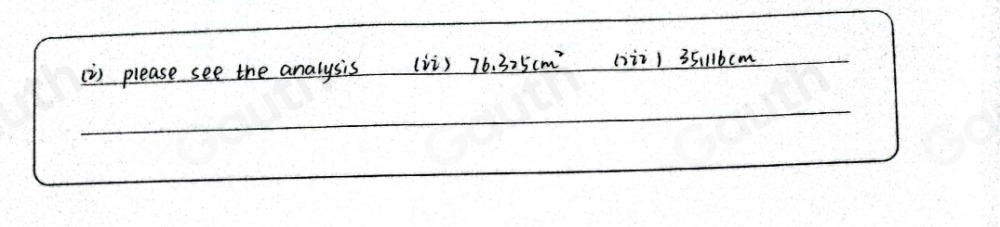 (i) please see the analysis (ii) 76.325cm² (iii) 35.116cm
Gauth Gauth Gauth